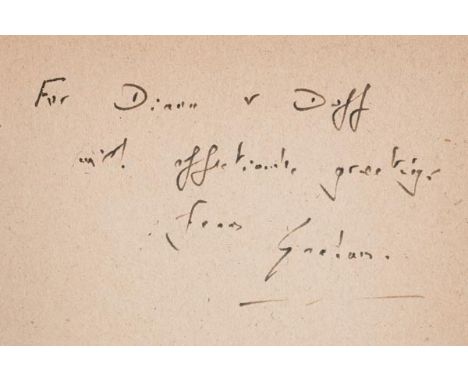 For Diana & Duff
with affectionate greetings
from
Graham.